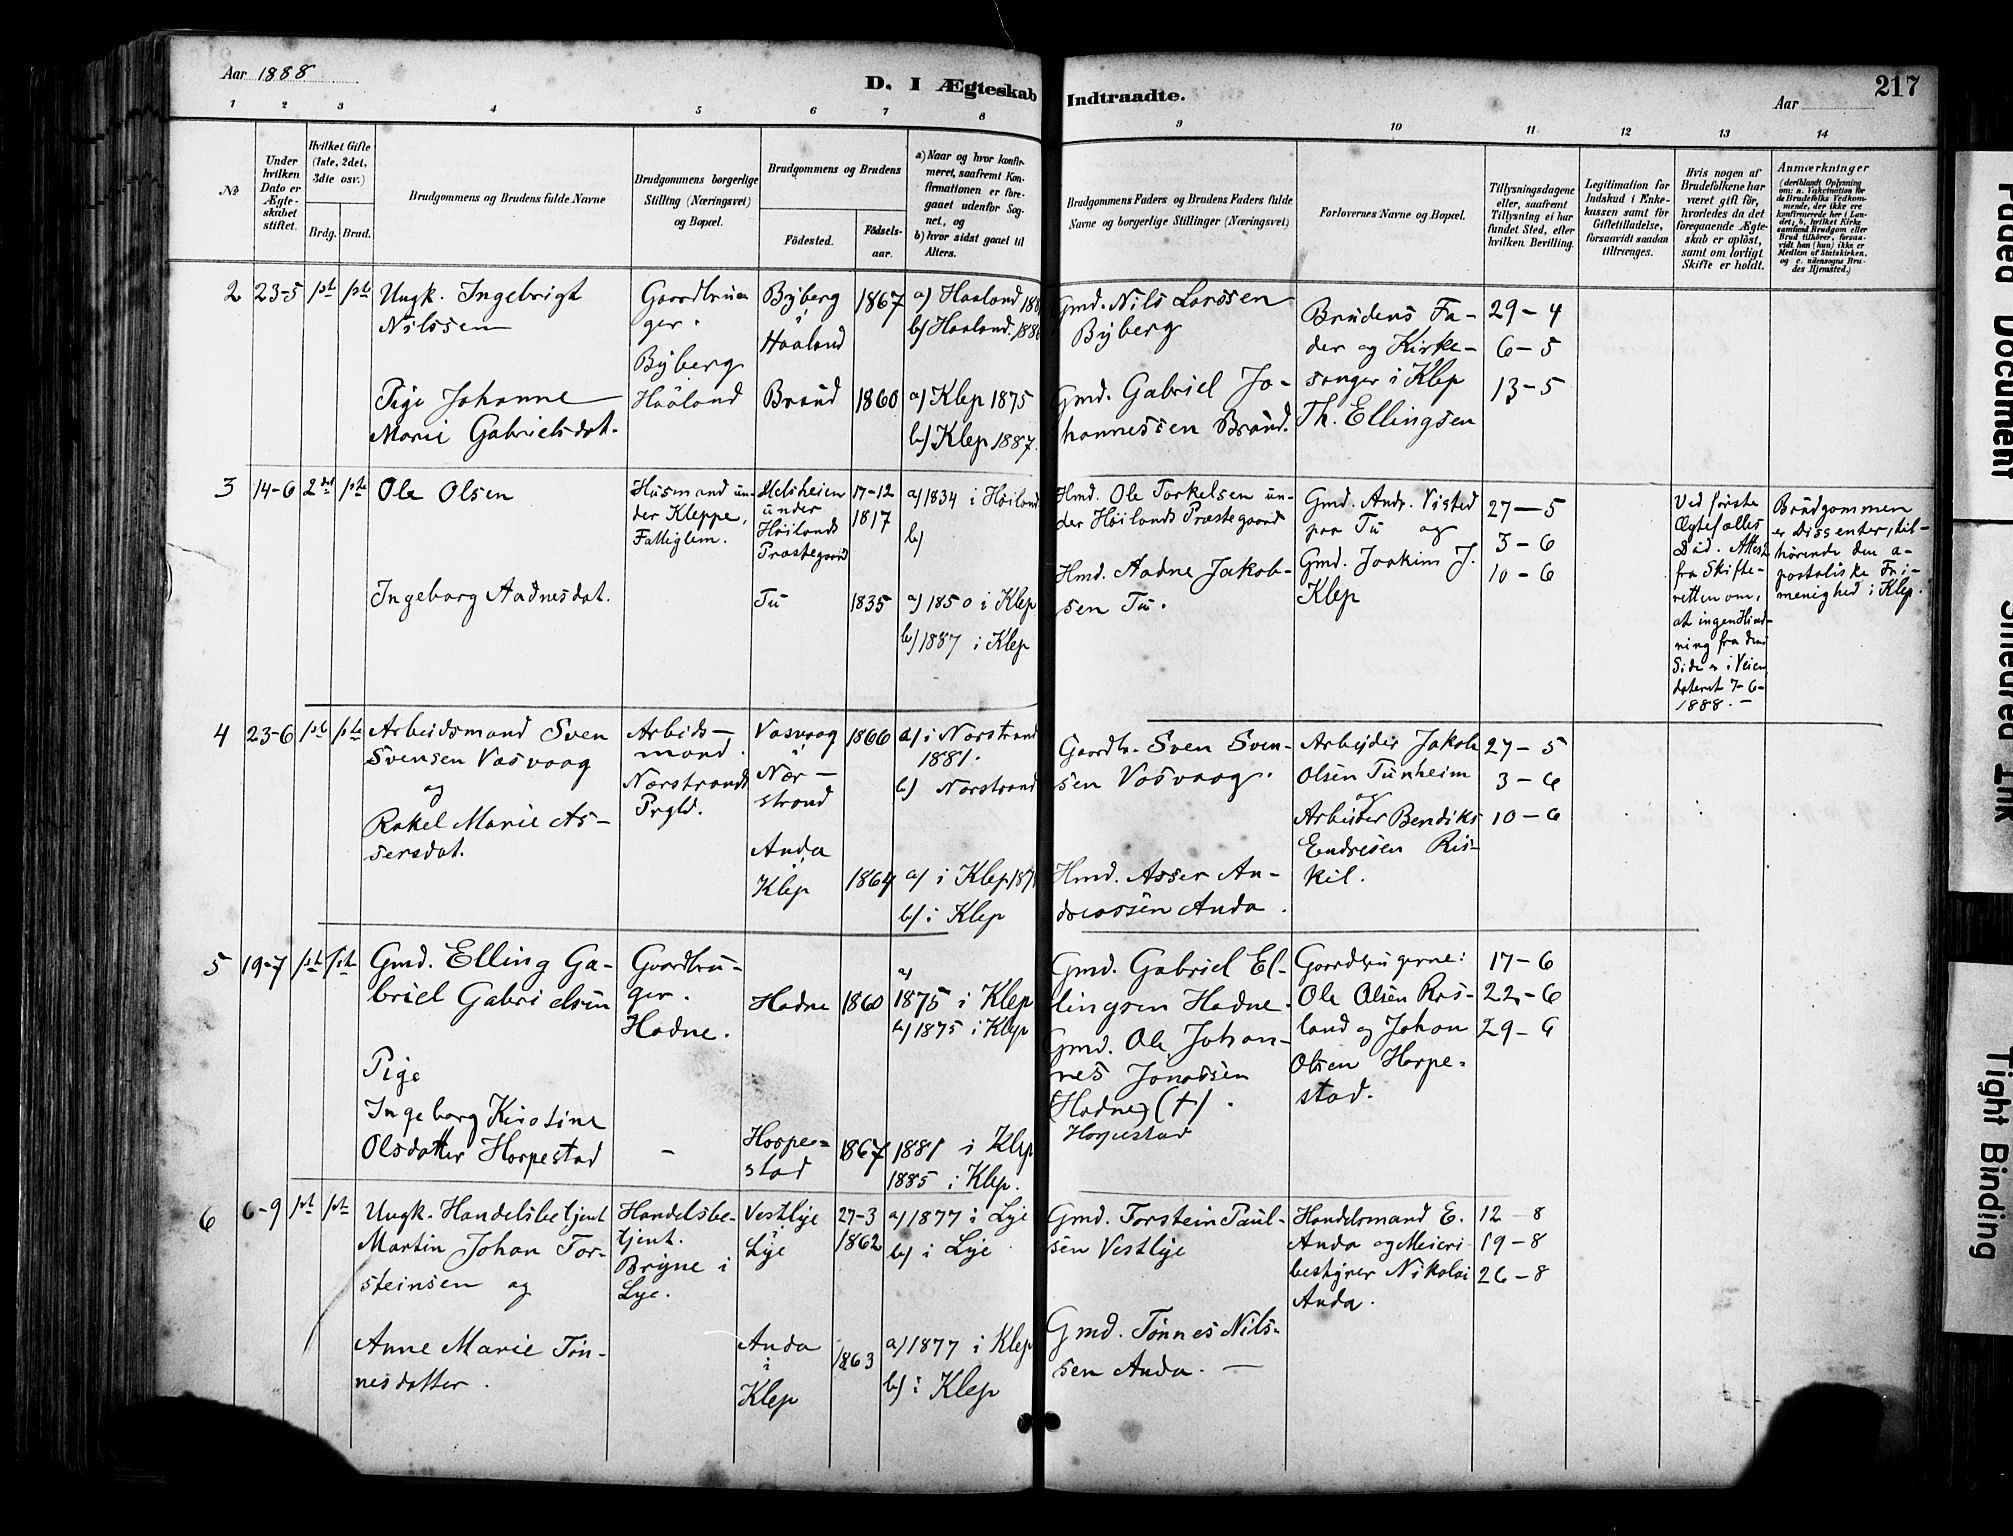 Aar 1888
D. I Ægteskab Indtraadte.
Aar
217
1 2 3 4 5 6 7 8 9 10 11 12 13 14
No
Under hvilken Dato er Ægteskabet stiftet.
Hvilket Gifte (1ste, 2det, 3die osv.)
Brdg. Brud.
Brudgommens og Brudens fulde Navne
Brudgommens borgerlige Stilling (Næringsvei) og Bopæl.
Brudgommens og Brudens
Fødested.
Fødselsaar.
a) Naar og hvor konfirmeret, saafremt Konfirmationen er foregaaet udenfor Sognet, og
b) hvor sidst gaaet til Alters.
Brudgommens Faders og Brudens Faders fulde Navne og borgerlige Stillinger (Næringsvei)
Forlovernes Navne og Bopæl.
Tillysningsdagene eller, saafremt Tillysning ei har fundet Sted, efter hvilken Bevilling.
Legitimation for Indskud i Enkekassen samt for Giftetilladelse, forsaavidt saadan tiltrænges.
Hvis nogen af Brudefolkene har været gift før, hvorledes da det foregaaende Ægteskab er opløst, samt om lovligt Skifte er holdt.
Anmærkninger
(deriblandt Oplysning om: a. Vakcination for de Brudefolks Vedkommende, der ikke ere konfirmerede her i Landet; b. hvilket Kirkesamfund Brudgom eller Brud tilhører, forsaavidt han (hun) ikke er Medlem af Statskirken, og c. udensogns Brudes Hjemsted.)
2
23-5
1ste
1ste
Ungk. Ingebrigt
Nilssen
Pige Johanne
Marie Gabrielsdat.
Gaardbru
ger.
Byberg
Håaland
Byberg
i
Haaland
Braud
1867
1860
a) Haaland
b) Haaland
a) Klep 1875
b) Klep 1887.
Gmd. Nils Larssen
Byberg
Gmd. Gabriel Jo-
hannessen Braud.
Brudens Fa-
der og Kirke-
sanger i Klep
Th. Ellingsen
29-4
6-5
13-5
3
14-6
2det
1ste
Ole Olsen
Ingeborg Aadnesdat.
Husmand un-
der Kleppe,
Fattiglem.
under
Höilands
Præstegaard
Tu
17-12
1817
1835
a) 1834 i Höiland
b)
a) 1850 i Klep
b) 1887 i Klep
Hmd. Ole Torkelsen un-
der Höilands Præstegaard
Hmd. Aadne Jakob-
sen Tu.
Gmd. Andr. Vigsted
paa Tu og
Gmd. Joakim J.
Klep
27-5
3-6
10-6
Ved første
Ægtefælles
Død. Attest
fra Skifte-
retten om,
at ingen Hind-
ring fra den
Side er i Veien
dateret 7-6-
1888.-
Brudgommen
er Dissenter, til-
hörende den a-
postoliske Fri-
menighed i Klep.
4
23-6
1ste
1ste
Arbeidsmand Sven
Svensen Vasvaag
og
Rakel Marie As-
sersdat.
Arbids-
mand.
Nærstrands
Prgld.
Vasvaag
i
Nær-
strand
Anda
Klep
1866
1864
a) i Nærstrand
1881.
b) Nærstrand
a) i Klep
b) i Klep
Gaardbr. Sven Sven-
sen Vasvaag.
Hmd. Asser An-
dreassen Anda.
Arbeider Jakob
Olsen Tunheim
og
Arbeider Bendiks
Endresen Ris-
kil.
27-5
3-6
10-6
5
19-7
1ste
1ste
Gmd. Elling Ga-
briel Gabrielsen
Pige
Ingeborg Kirstine
Olsdatter Horpestad
Gaardbru-
ger.
Hadne.
-
Hadne
Horpe-
stad
1860
1867
a)
1875 i Klep
a) 1875 i Klep
1881 i Klep
1885 i Klep.
Gmd. Gabriel El-
lingsen Hadne.
Gmd. Ole Johan-
nes Jonassen
(Hadne) (+).
Horpestad
Gaardbrugerne:
Ole Olsen Ros-
land og Johan
Olsen Horpe-
stad.
17-6
22-6
29-6
6
6-9
1ste
1ste
Ungk. Handelsbetjent
Martin Johan Tor-
steinsen og
Anne Marie Tön-
nesdatter.
Handelsbe-
tjent.
Bryne i
Lye.
Vestlye
i
Lye
Anda
i
Klep
27-3
1862
1863
a) 1877 i Lye
b) i Lye
a) 1877 i Klep
b) i Klep
Gmd. Torstein Paul-
sen Vestlye
Gmd. Tönnes Nils-
sen Anda.-
Handelsmand E.
Anda og Meieri
bestyrer Nikolai
Anda.
12-8
19-8
26-8
Faded Document
Smeared Ink
Tight Binding